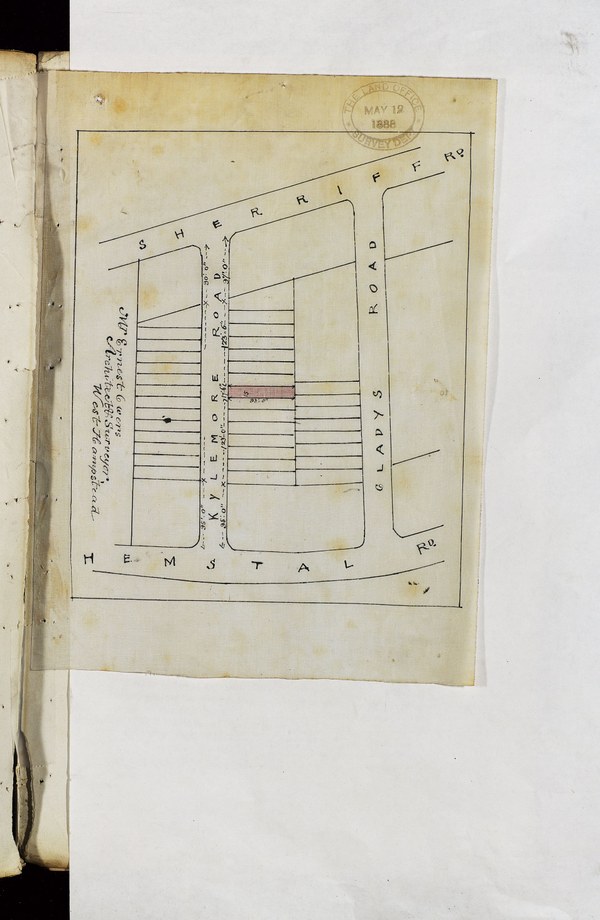 THE LAND OFFICE
MAY 12
1888
SURVEY DEPT
SHERRIFF RD.
KYLEMORE ROAD
GLADYS ROAD
HEMSTAL RD.
Mr Ernest Owers
Architect & Surveyor
West Hampstead